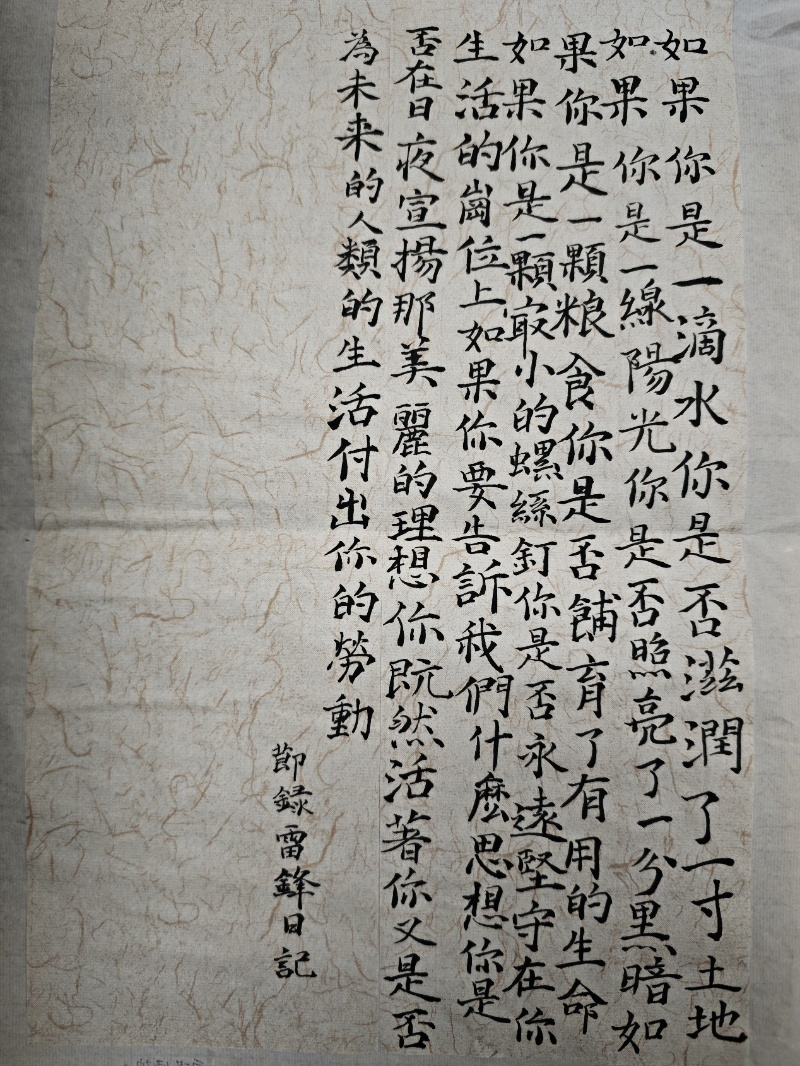 如果你是一滴水你是否滋潤了一寸土地
如果你是一線陽光你是否照亮了一分黑暗如
果你是一顆粮食你是否餔育了有用的生命
如果你是一顆寂小的螺絲釘你是否永遠堅守在你
生活的崗位上如果你要告訴我們什麼思想你是
否在日夜宣揚那美麗的理想你既然活著你又是否
為未来的人類的生活付出你的勞動
節録雷鋒日記